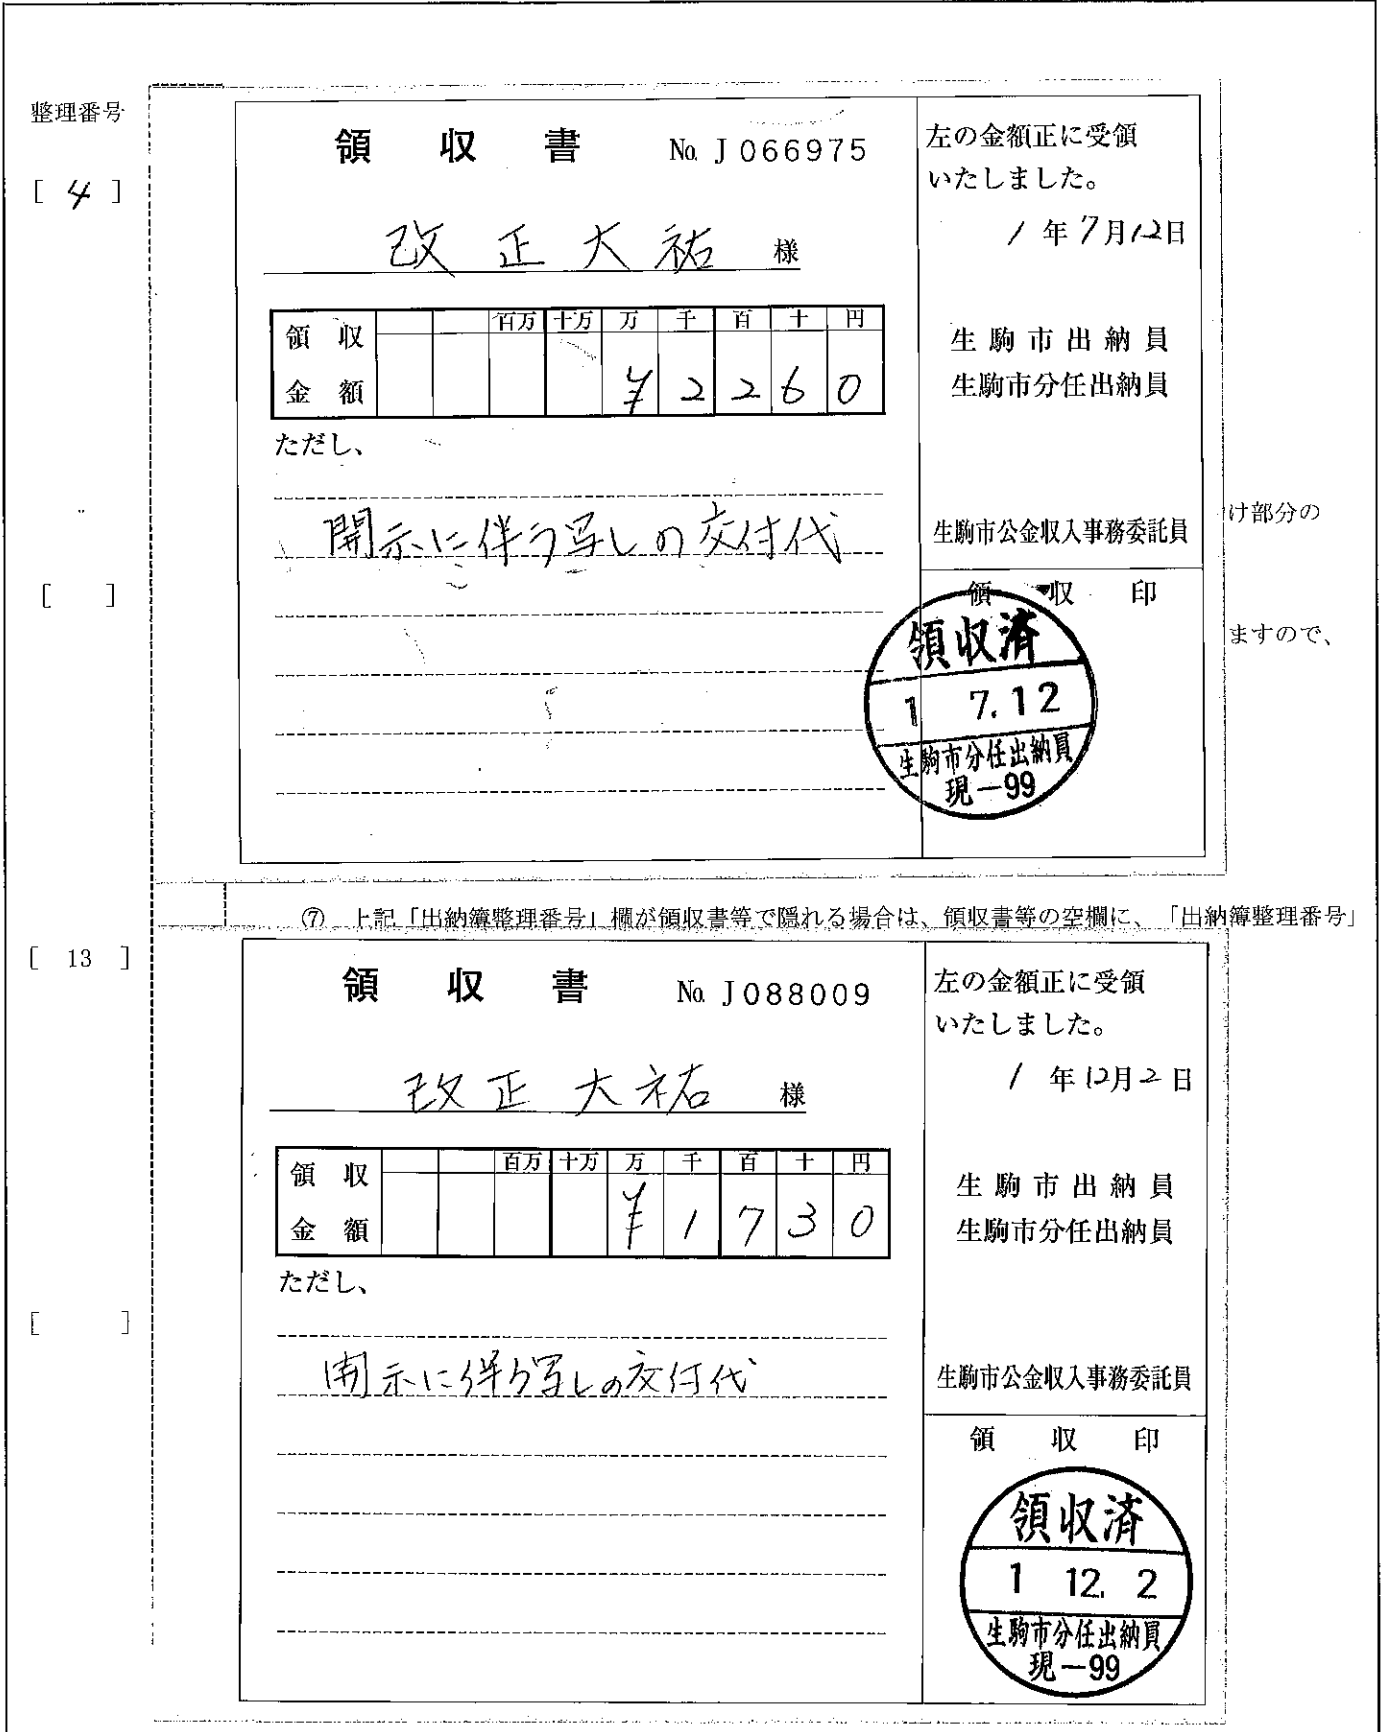 整理番号
[ 4 ]
領 収 書 № J066975
改正大祐 様
領収金額
百万 十万 万 千 百 十 円
¥2260
ただし、
開示に伴う写しの交付代
左の金額正に受領
いたしました。
1年7月12日
生駒市出納員
生駒市分任出納員
生駒市公金収入事務委託員
領 収 印
領収済
1 7.12
生駒市分任出納員
現-99
け部分の
[ ]
ますので、
⑦ 上記「出納簿整理番号」欄が領収書等で隠れる場合は、領収書等の空欄に、「出納簿整理番号」
[ 13 ]
領 収 書 № J088009
改正大祐 様
領収金額
百万 十万 万 千 百 十 円
¥1730
ただし、
開示に伴う写しの交付代
左の金額正に受領
いたしました。
1年12月2日
生駒市出納員
生駒市分任出納員
生駒市公金収入事務委託員
領 収 印
領収済
1 12. 2
生駒市分任出納員
現-99
[ ]